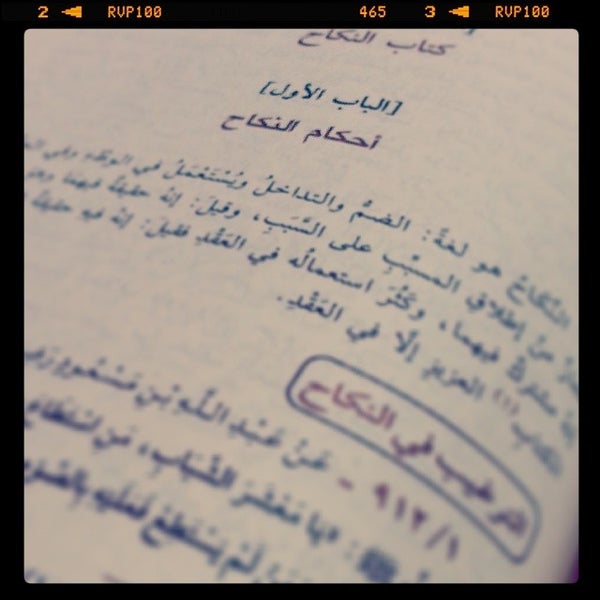 2 RVP100 465 3 RVP100
كتاب النكاح
[الباب الأول]
أحكام النكاح
النِّكَاحُ هو لغةً: الضمُّ والتداخلُ ويُسْتَعْمَلُ في الوطءِ وفي
منْ إطلاقِ المسبَّبِ على السَّبَبِ، وقيل: إنَّهُ حقيقةٌ فيهما
فيهما، وكَثُرَ استعمالُه في العَقْدِ فقيل: إنَّهُ فيهِ حقيقةٌ
(١) العزيزِ إلَّا في العَقْدِ.
الترغيب في النكاح
٩١٢/١ - عَنْ عَبْدِ اللَّهِ بْنِ مَسْعُودٍ
ﷺ: «يَا مَعْشَرَ الشَّبَابِ، مَنِ اسْتَطَاعَ
لَمْ يَسْتَطِعْ فَعَلَيْهِ بِالصَّوْمِ